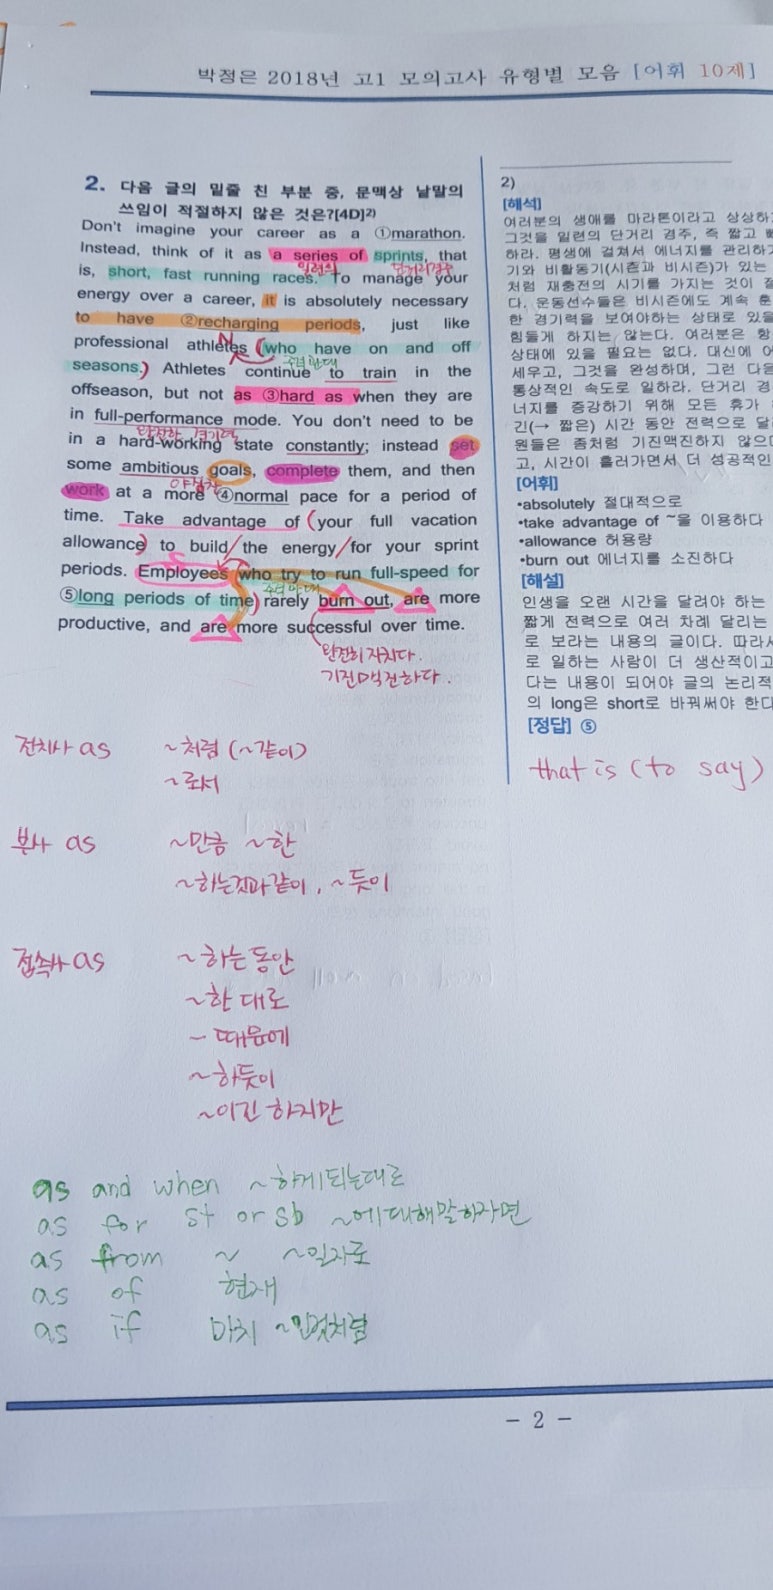 박정은 2018년 고1 모의고사 유형별 모음 [어휘 10제]
2. 다음 글의 밑줄 친 부분 중, 문맥상 낱말의
쓰임이 적절하지 않은 것은?[4D]2)
Don't imagine your career as a ①marathon.
Instead, think of it as a series of sprints, that
일련의 단거리경주
is, short, fast running races. To manage your
energy over a career, it is absolutely necessary
to have ②recharging periods, just like
professional athletes (who have on and off
주격관대
seasons.) Athletes continue to train in the
offseason, but not as ③hard as when they are
in full-performance mode. You don't need to be
완전한 경기력
in a hard-working state constantly; instead set
some ambitious goals, complete them, and then
야심찬
work at a more ④normal pace for a period of
time. Take advantage of (your full vacation
allowance) to build/ the energy/ for your sprint
S
periods. Employees (who try to run full-speed for
주격관대
⑤long periods of time) rarely burn out, are more
productive, and are more successful over time.
완전히 지치다.
기진맥진하다.
전치사 as ~처럼 (~같이)
~로서
부사 as ~만큼 ~한
~하는것과같이, ~듯이
접속사 as ~하는동안
~한 대로
~ 때문에
~하듯이
~이긴 하지만
as and when ~하게되는대로
as for st or sb ~에대해말하자면
as from ~ ~일자로
as of 현재
as if 마치 ~인것처럼
2)
[해석]
여러분의 생애를 마라톤이라고 상상하
그것을 일련의 단거리 경주, 즉 짧고
하라. 평생에 걸쳐서 에너지를 관리하
기와 비활동기(시즌과 비시즌)가 있는
처럼 재충전의 시기를 가지는 것이
다. 운동선수들은 비시즌에도 계속 훈
한 경기력을 보여야하는 상태로 있을
힘들게 하지는 않는다. 여러분은 항
상태에 있을 필요는 없다. 대신에
세우고, 그것을 완성하며, 그런 다음
통상적인 속도로 일하라. 단거리 경
너지를 증강하기 위해 모든 휴가
긴(→ 짧은) 시간 동안 전력으로
원들은 좀처럼 기진맥진하지 않으
고, 시간이 흘러가면서 더 성공적인
[어휘]
•absolutely 절대적으로
•take advantage of ~을 이용하다
•allowance 허용량
•burn out 에너지를 소진하다
[해설]
인생을 오랜 시간을 달려야 하는
짧게 전력으로 여러 차례 달리는
로 보라는 내용의 글이다. 따라서
로 일하는 사람이 더 생산적이고
다는 내용이 되어야 글의 논리적
의 long은 short로 바꿔써야 한다
[정답] ⑤
that is (to say)
- 2 -